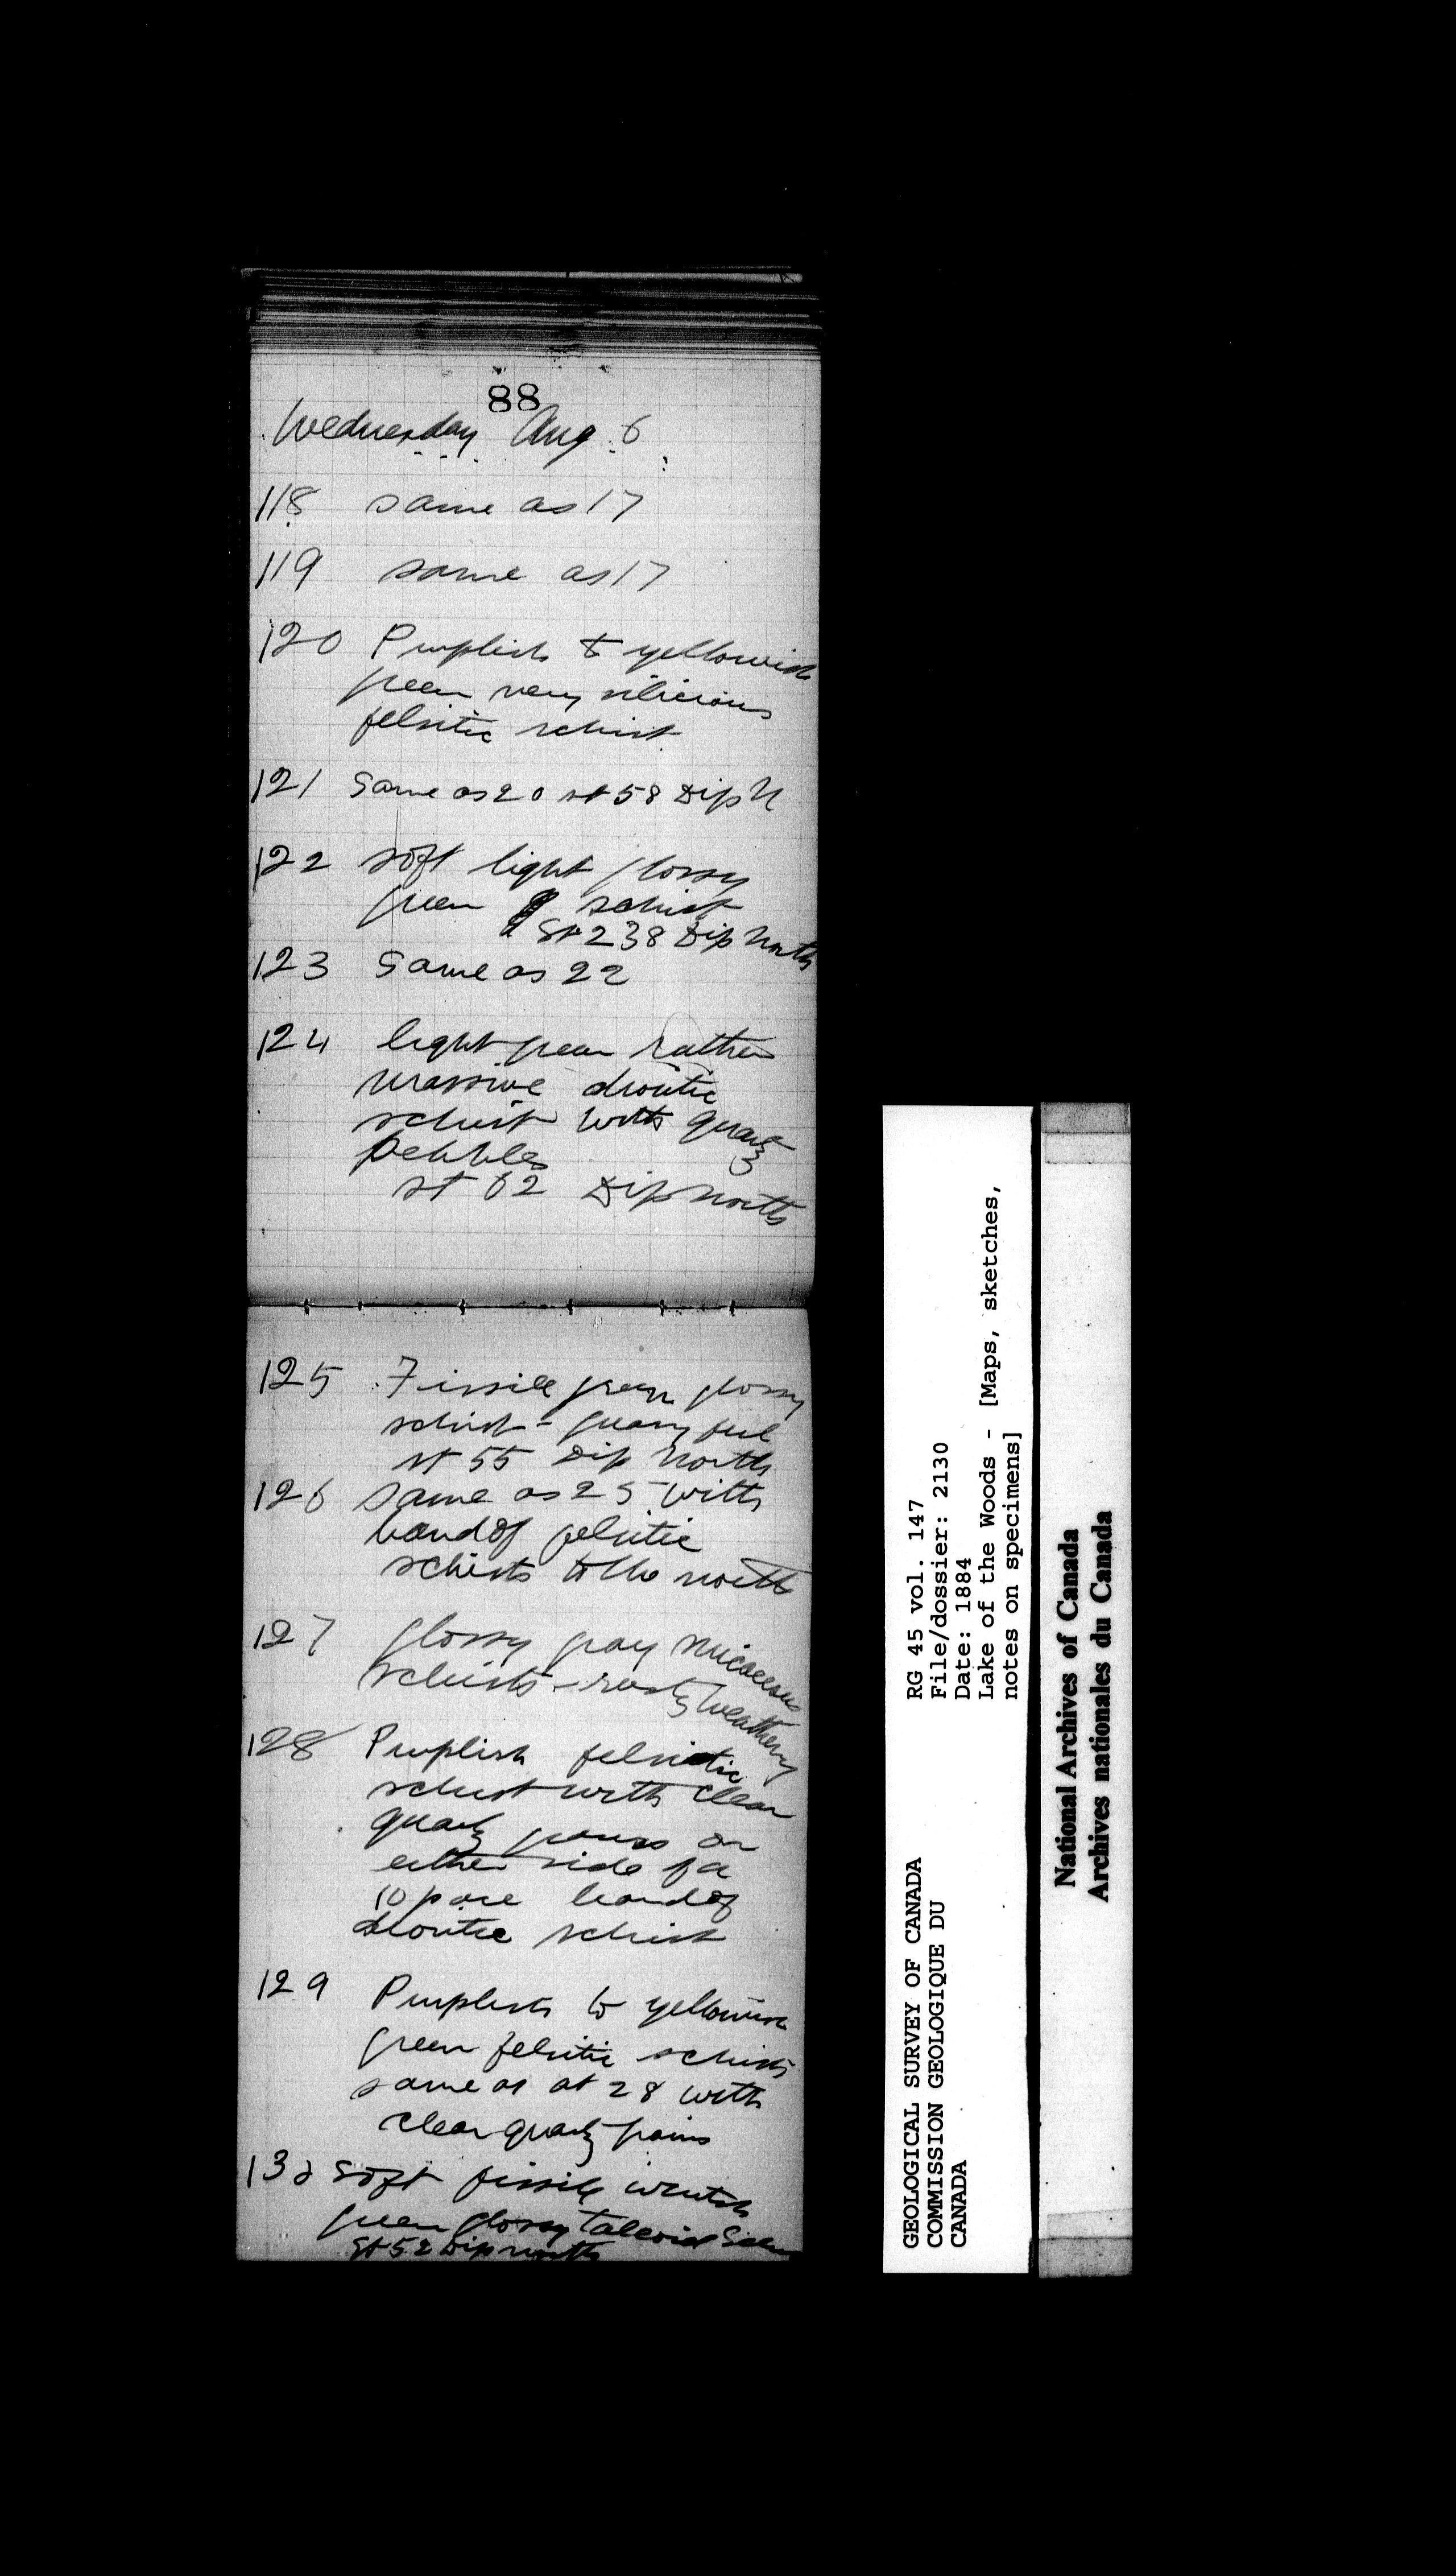 88
Wednesday Aug 6
118 same as 17
119 same as 17
120 Purplish to yellowish
green very silicious
felsitic schist
121 Same as 20 st 58 Dip N
122 soft light glossy
green schist
St 238 Dip North
123 Same as 22
124 light green rather
massive dioritic
schist with quartz
pebbles
st 62 Dip north
125 Fissile green glossy
schist - feel
st 55 Dip North
126 same as 25 with
band of felsitic
schists to the north
127 glossy gray micaceous
schists - rusty weathering
128 Purplish felsitic
schist with clear
quartz grains on
either side of a
10 pace band of
dioritic schist
129 Purplish to yellowish
green felsitic schists
same as at 28 with
clear quartz grains
130 Soft fissile
green glossy talcoid
St 52 Dip north
RG 45 vol. 147
File/dossier: 2130
Date: 1884
Lake of the Woods - [Maps, sketches,
notes on specimens]
GEOLOGICAL SURVEY OF CANADA
COMMISSION GEOLOGIQUE DU
CANADA
National Archives of Canada
Archives nationales du Canada